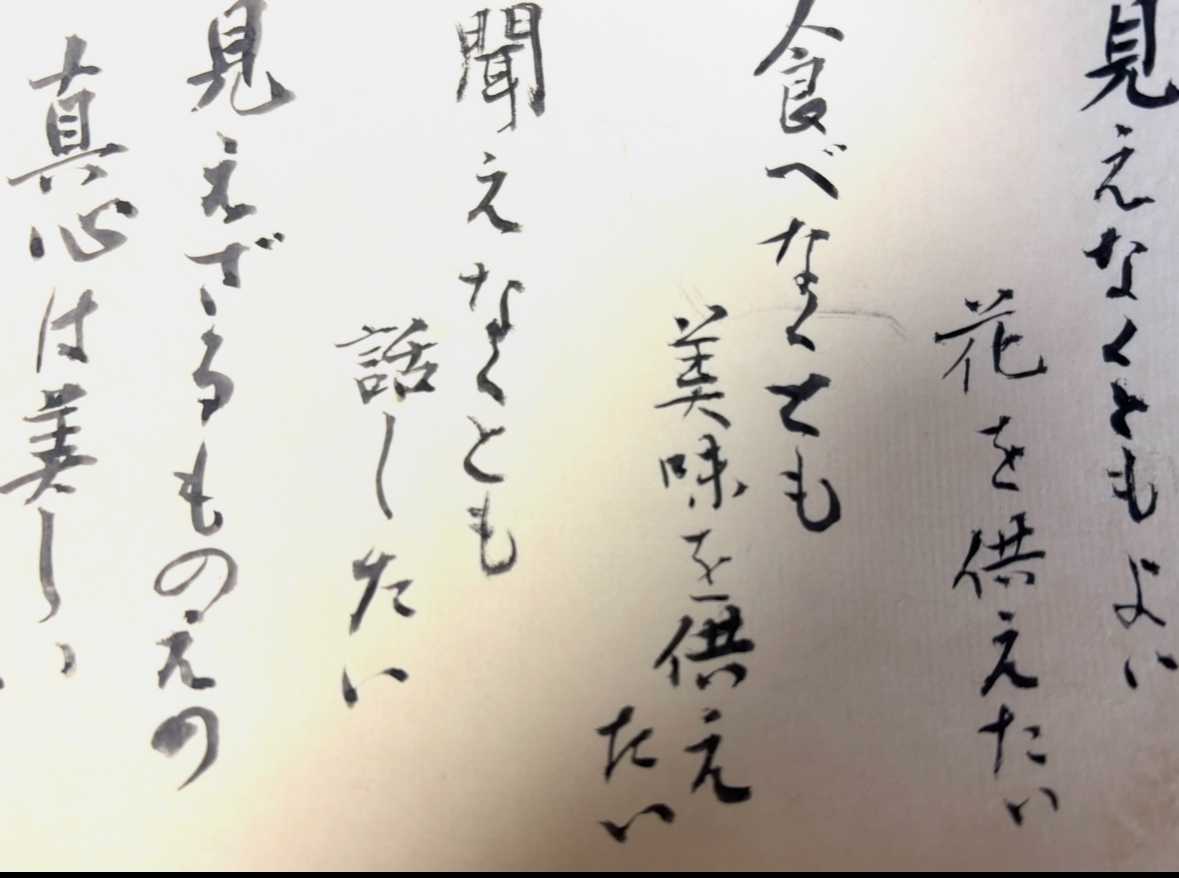 見えなくともよい
花を供えたい
食べなくても
美味を供え
たい
聞えなくとも
話したい
見えざるものえの
真心は美しい